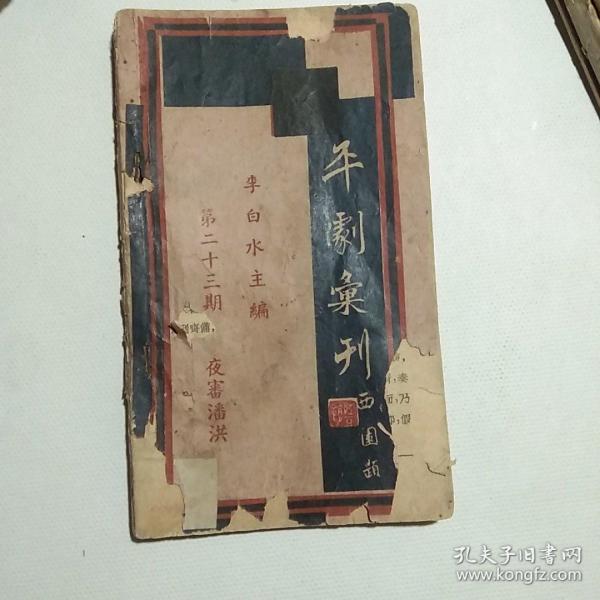 平劇彙刊
西園題
李白水主編
第二十三期
夜審潘洪
孔夫子旧书网
www.kongfz.com